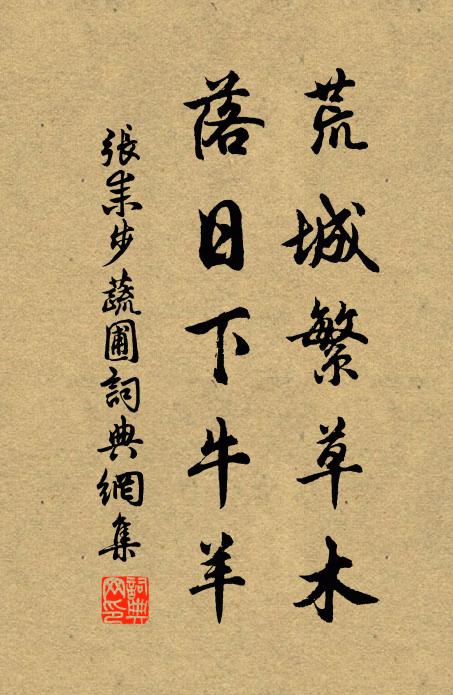 荒城繁草木
落日下牛羊
張耒步蔬圃詞典網集
詞典網印